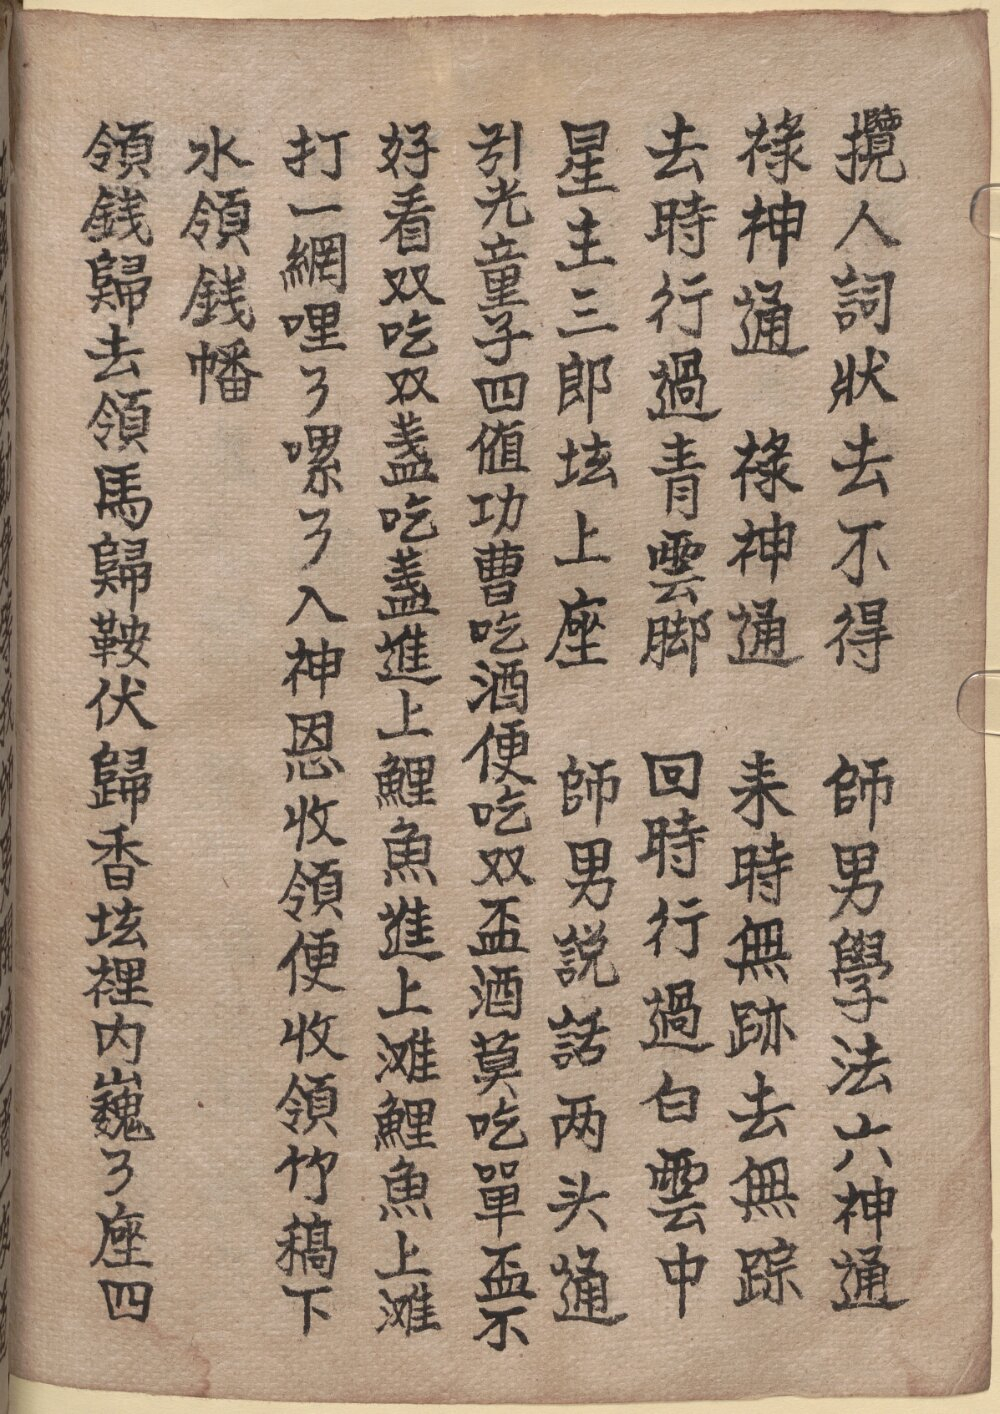 攬人詞狀去不得　師男學法六神通
祿神通　祿神通　来時無跡去無踪
去時行過青雲脚　回時行過白雲中
星主三郎坛上座　師男説話两头通
引光童子四值功曹吃酒便吃双盃酒莫吃單盃不
好看双吃双盞吃盞進上鯉魚進上滩鯉魚上滩
打一網哩了嘿了入神恩收領便收領竹稿下
水領銭幡
領銭歸去領馬歸鞍伏歸香坛裡内巍了座四